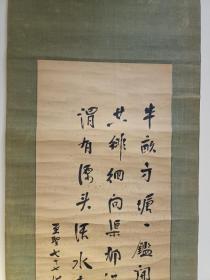 半畝方塘一鑑開
共徘徊问渠那
谓有源头活水